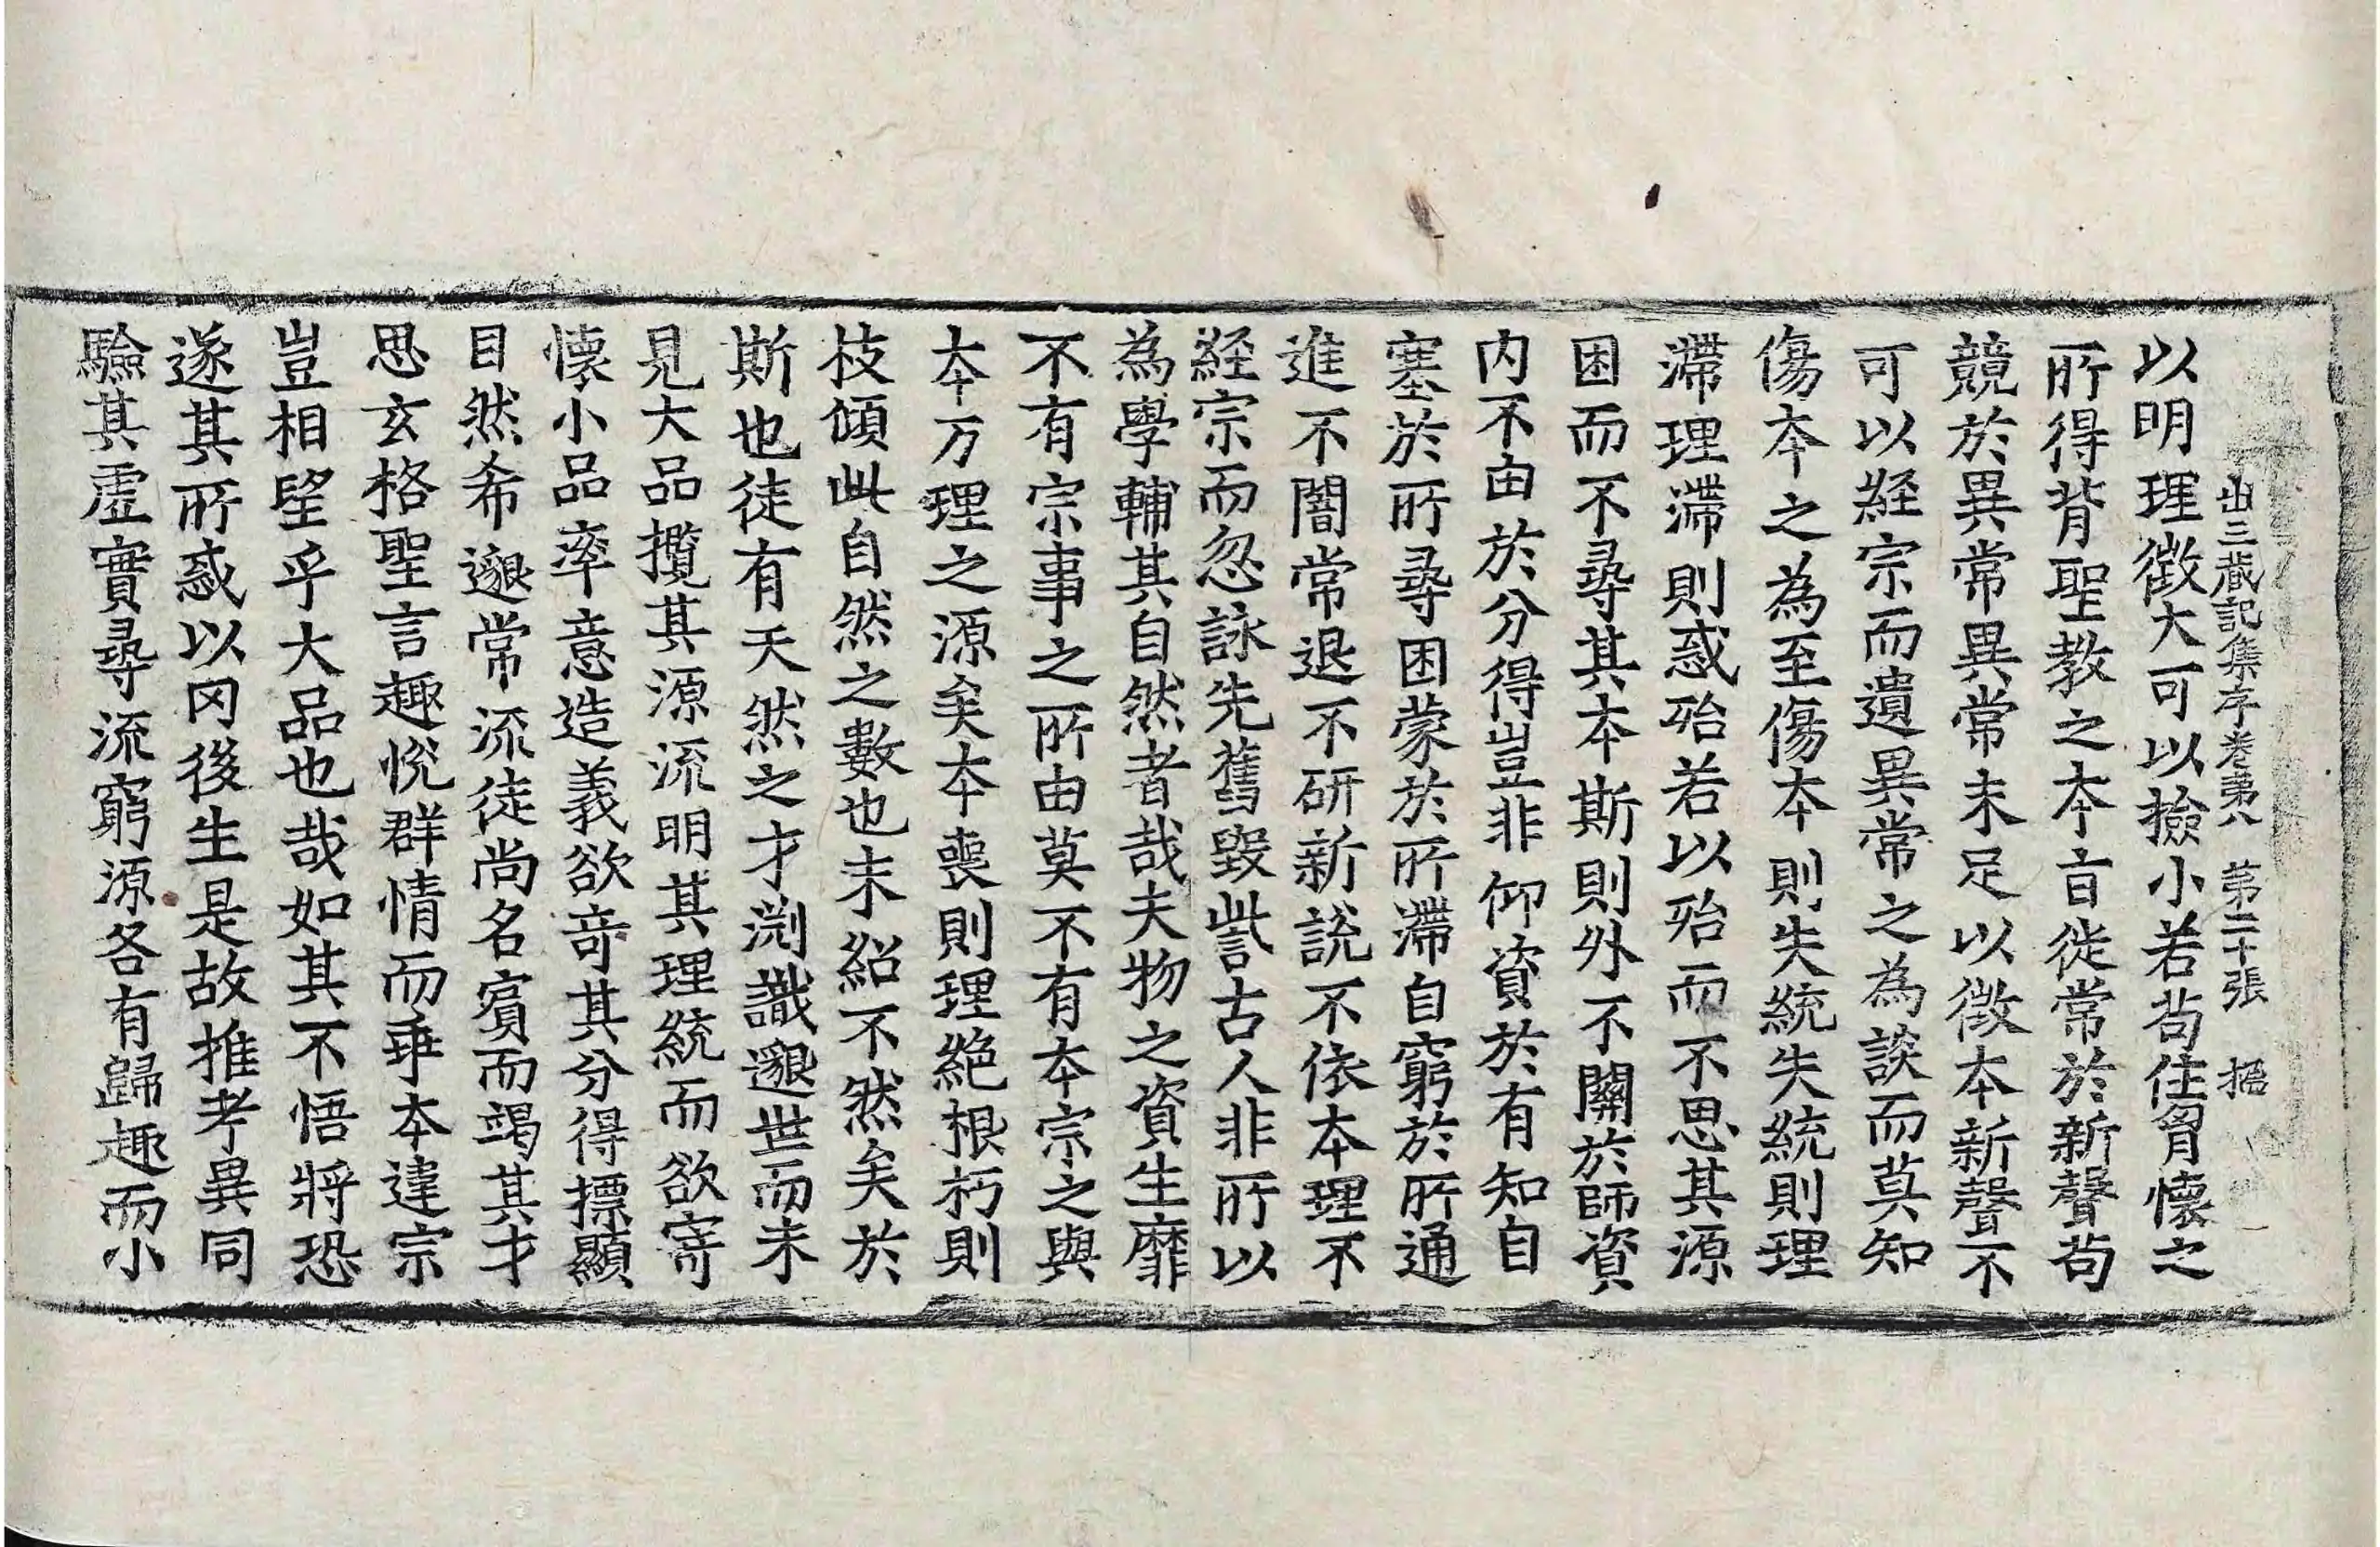 出三藏記集序卷第八 第二十張 搢
以明理徵大可以撿小若苟任胷懷之
所得背聖教之本旨徙常於新聲苟
競於異常異常未足以徵本新聲不
可以經宗而遺異常之為談而莫知
傷本之為至傷本則失統失統則理
滯理滯則惑殆若以殆而不思其源
困而不尋其本斯則外不關於師資
内不由於分得豈非仰資於有知自
塞於所尋困蒙於所滯自窮於所通
進不闇常退不研新說不依本理不
經宗而忽詠先舊毀訾古人非所以
為學輔其自然者哉夫物之資生靡
不有宗事之所由莫不有本宗之與
本万理之源矣本喪則理絕根朽則
枝傾此自然之數也未紹不然矣於
斯也徒有天然之才渕識邈世而未
見大品攬其源流明其理統而欲寄
懷小品率意造義欲奇其分得標顯
目然希邈常流徒尚名賔而竭其才
思玄格聖言趣悅群情而乖本違宗
豈相望乎大品也哉如其不悟將恐
遂其所惑以罔後生是故推考異同
驗其虛實尋流窮源各有歸趣而小